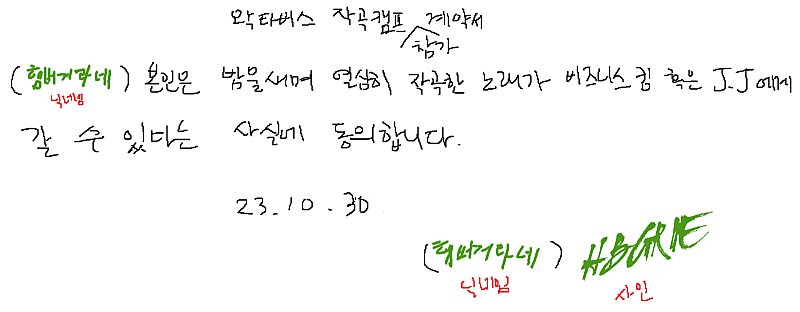 왁타버스 작곡캠프 참가 계약서
(힘버거라네) 본인은 밤을새며 열심히 작곡한 노래가 비즈니스킴 혹은 J.J에게
닉네임
갈 수 있다는 사실에 동의합니다.
23.10.30
(힘버거라네) HBGRNE
닉네임 사인